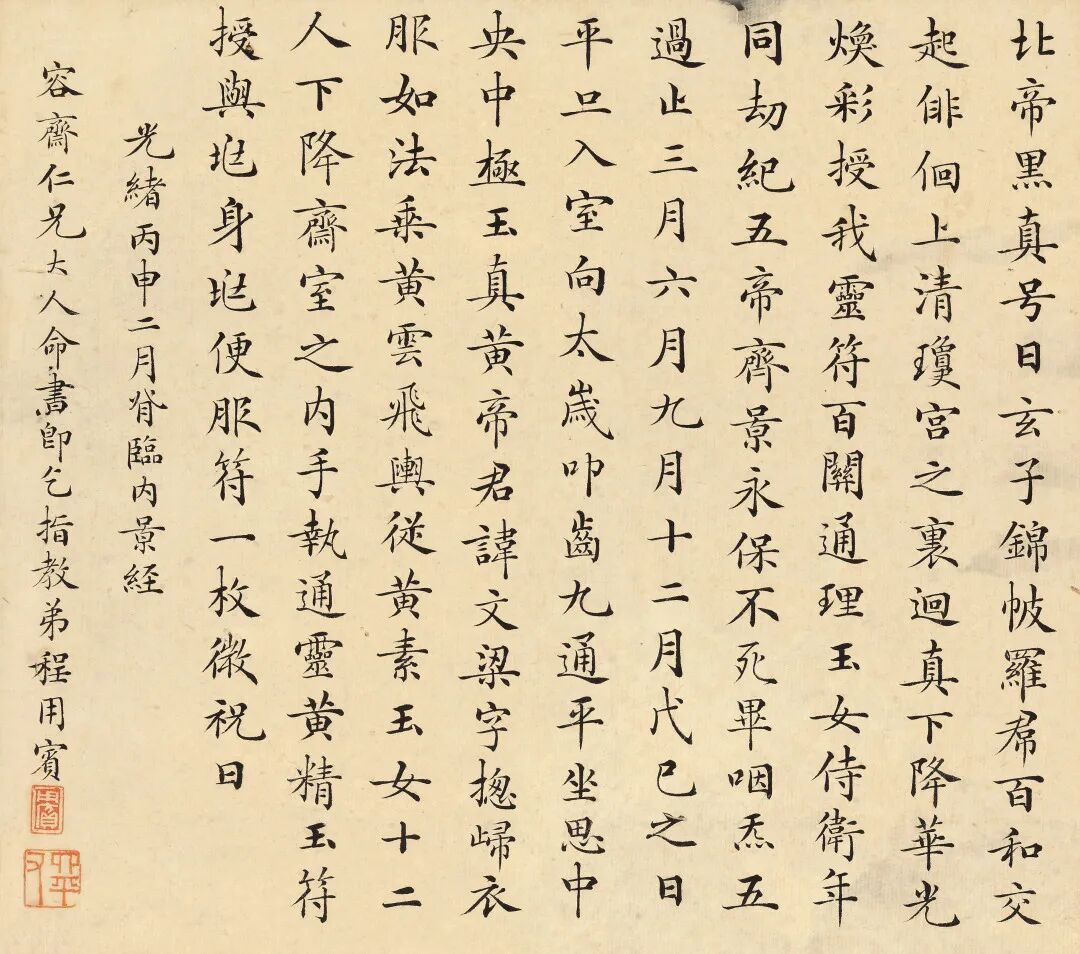 北帝黑真号曰玄子錦帔羅帬百和交
起俳佪上清瓊宮之裏迴真下降華光
煥彩授我靈符百關通理玉女侍衛年
同劫紀五帝齊景永保不死畢咽炁五
過止三月六月九月十二月戊己之日
平旦入室向太歲叩齒九通平坐思中
央中極玉真黃帝君諱文梁字揔歸衣
服如法乗黃雲飛輿從黃素玉女十二
人下降齋室之内手執通靈黃精玉符
授與兆身兆便服符一枚微祝曰
光緒丙申二月脊臨内景経
容齋仁兄大人命書即乞指教弟程用賓